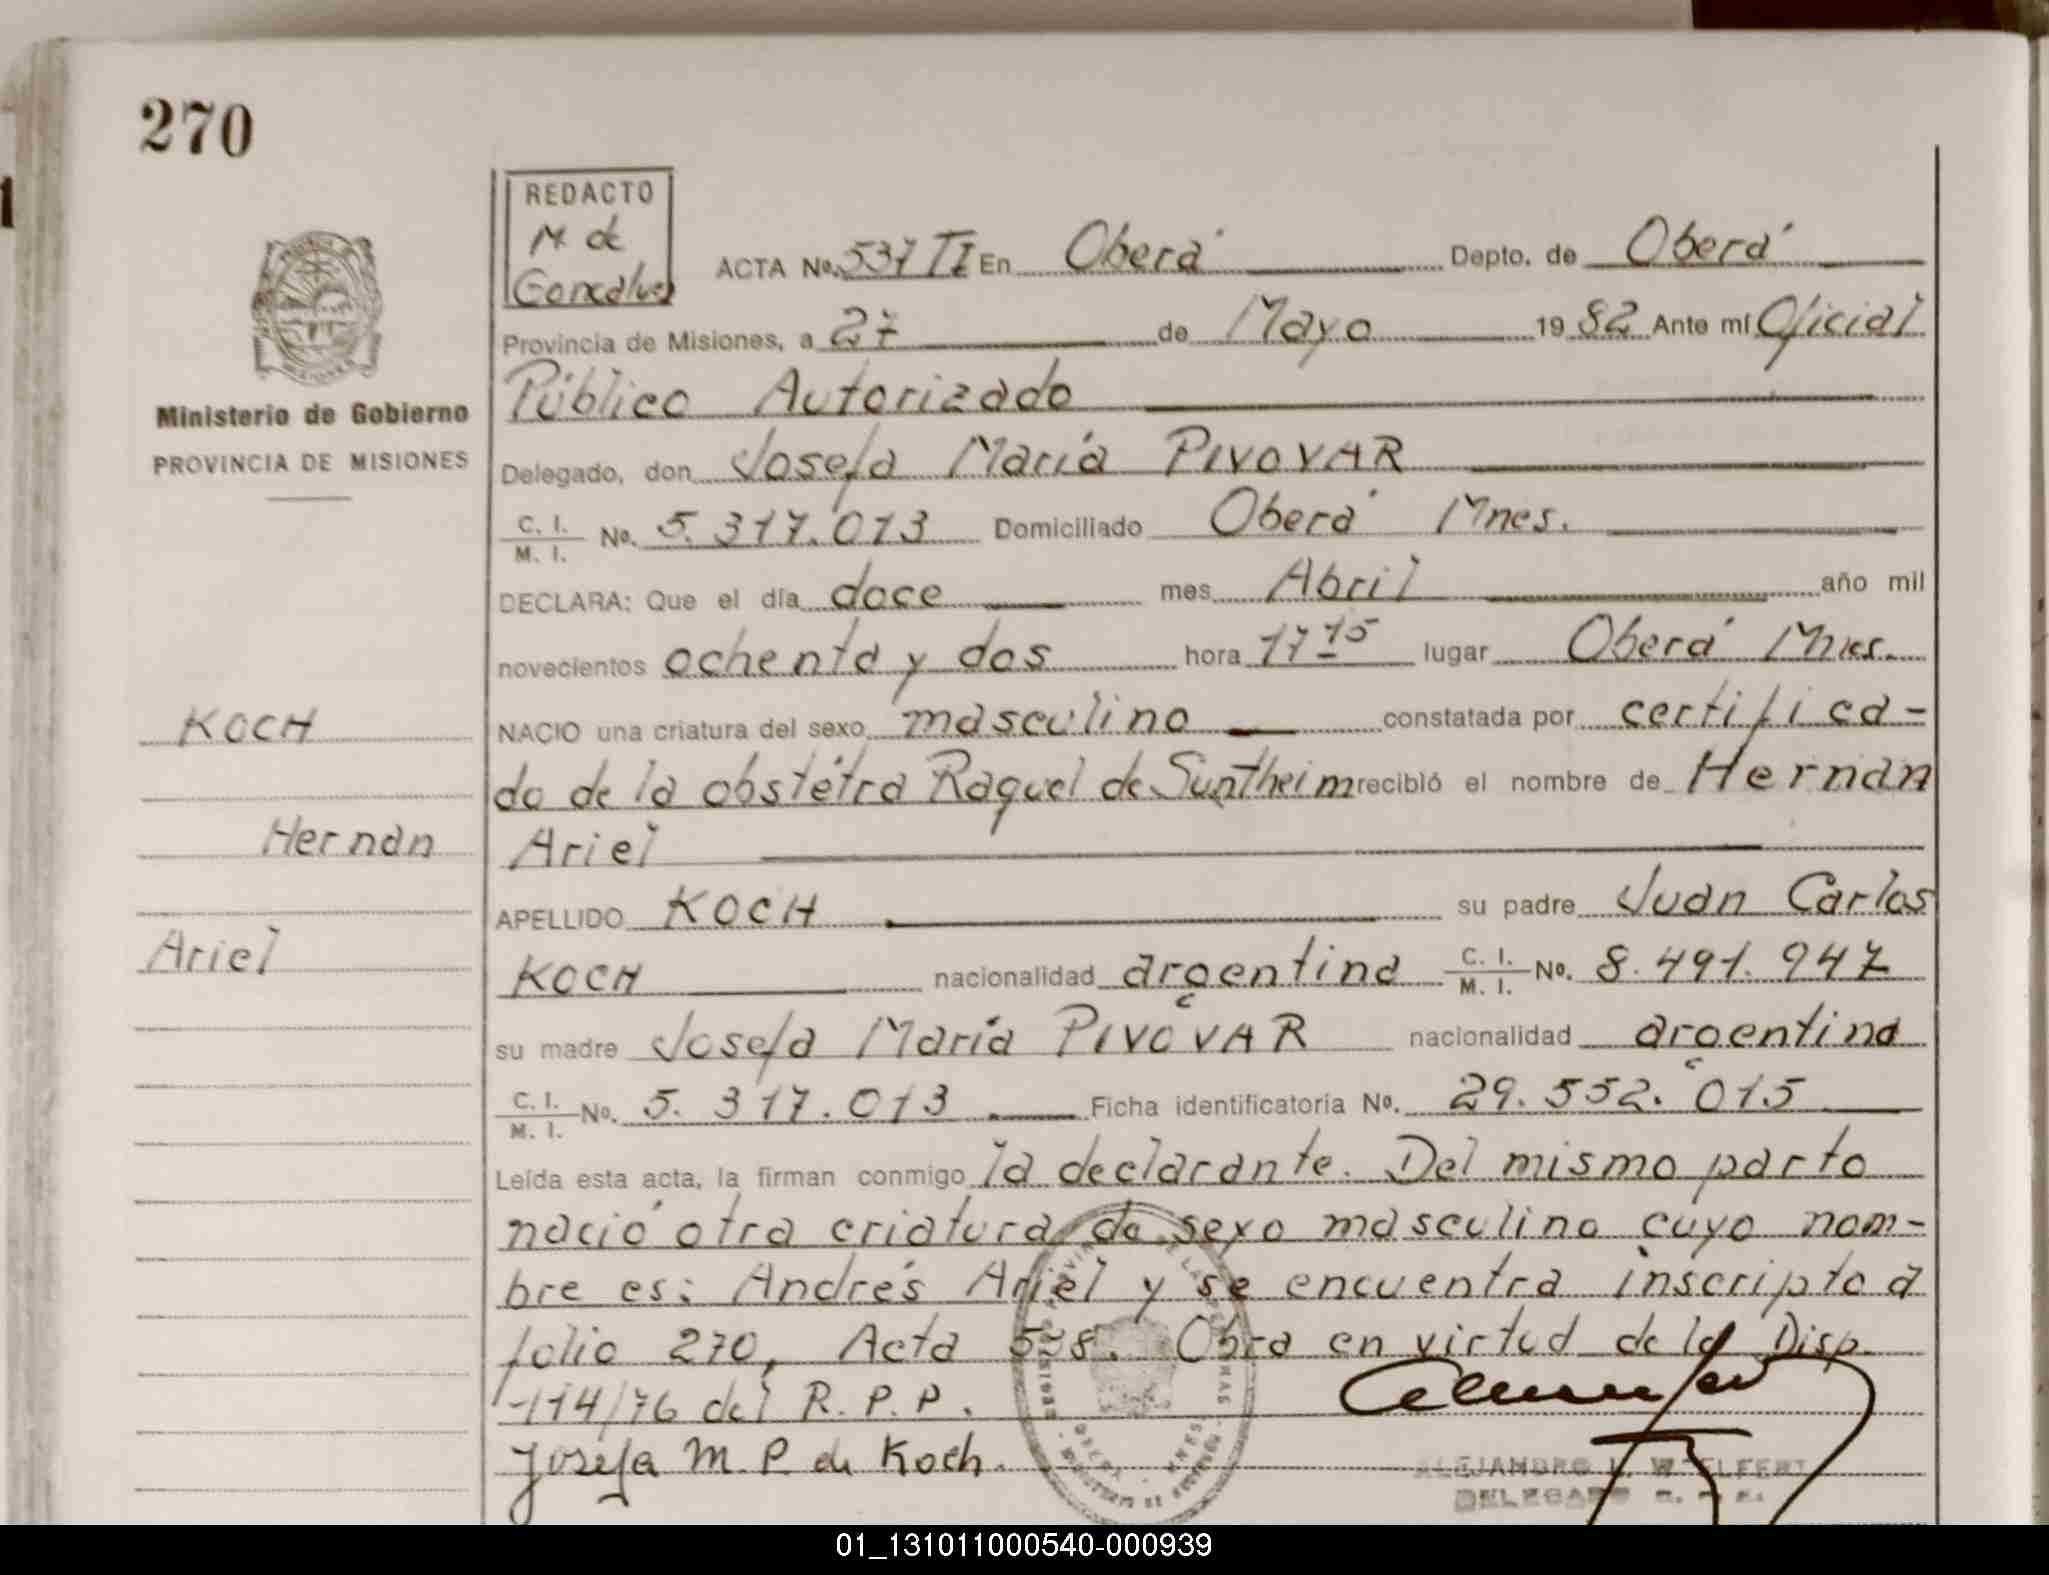 270
REDACTO
M de
Goncalves
ACTA No. 537 TI En Oberá Depto. de Oberá
Provincia de Misiones, a 27 de Mayo 1982 Ante mí Oficial
Público Autorizado
Ministerio de Gobierno
PROVINCIA DE MISIONES
Delegado, don Josefa María PIVOVAR
C. I. / M. I. No. 5.317.013 Domiciliado Oberá Mnes.
DECLARA: Que el día doce mes Abril año mil
novecientos ochenta y dos hora 17 15 lugar Oberá Mnes.
KOCH
NACIO una criatura del sexo masculino constatada por certifica-
do de la obstétra Raquel de Suntheim recibió el nombre de Hernan
Hernan
Ariel
APELLIDO KOCH su padre Juan Carlos
Ariel
KOCH nacionalidad argentina C. I. / M. I. No. 8.491.947
su madre Josefa María PIVOVAR nacionalidad argentina
C. I. / M. I. No. 5.317.013 Ficha identificatoria No. 29.552.015
Leída esta acta, la firman conmigo la declarante. Del mismo parto
nació otra criatura de sexo masculino cuyo nom-
bre es: Andrés Ariel y se encuentra inscripto a
folio 270, Acta 538. Obra en virtud de la Disp.
114/76 del R. P. P.
Josefa M. P. de Koch.
DELEGADO
01_131011000540-000939